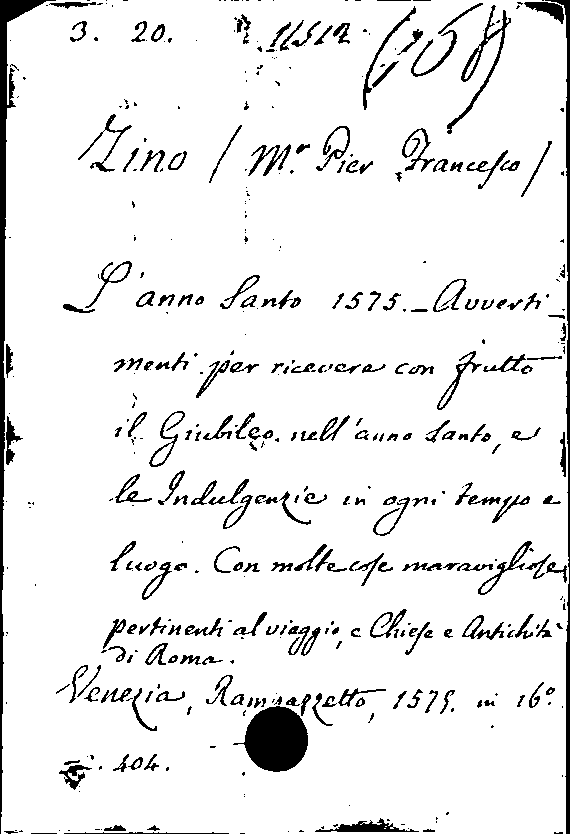 3. 20. 11512 (158)
Zino / M.r Pier Francesco /
L'anno Santo 1575. _ Avverti_
menti per ricevere con frutto
il Giubileo nell'anno Santo, e
le Indulgenzie in ogni tempo e
luogo. Con molte cose maravigliose
pertinenti al viaggio, e Chiese e Antichità
di Roma.
Venezia, Rampazzetto, 1575. in 16º.
404.